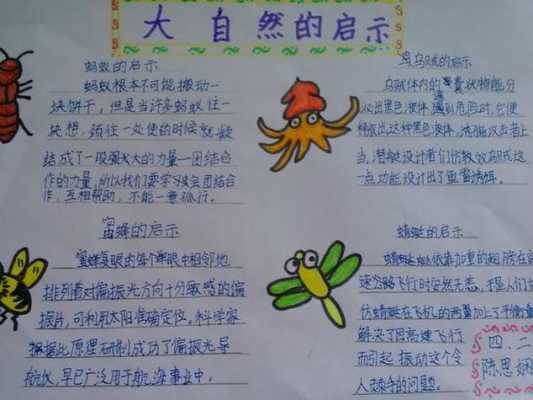 大自然的启示
蚂蚁的启示
蚂蚁根本不可能搬动一
块饼干，但是当许多蚂蚁往一
块想，须往一处使的时候就能
结成了一股强大的力量—团结合
作的力量，所以我们要学习会团结合
作，互相帮助，不能一意孤行。
乌贼的启示
乌贼体内的囊状物能分
必出黑色液体，遇到危险时，它便
释放出这种黑色液体，
当，潜艇设计者们仿效乌贼这
一点功能设计出了鱼雷诱饵。
蜜蜂的启示
蜜蜂复眼的每个单眼中相邻地
排列着对偏振光方向十分敏感的偏
振片，可利用太阳准确定位。科学家
根据此原理研制成功了偏振光导
航仪，早已广泛用于航海事业中。
蜻蜓的启示
蜻蜓依靠加重的翅膀在高
速飞行时安然无恙，于是人们
仿蜻蜓在飞机的两翼加上了平衡重
解决了因高速飞行
而引起振动这个令
人棘手的问题。
四、二
陈思娴